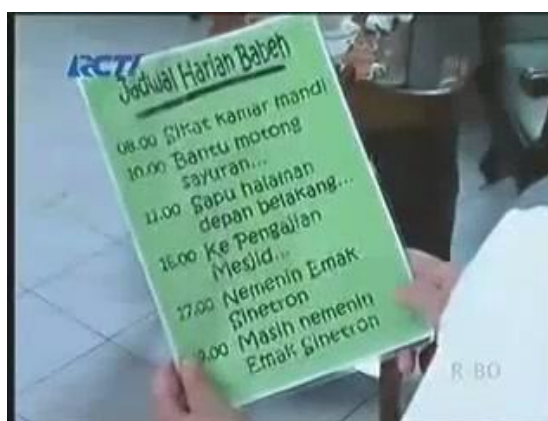 RCTI
Jadwal Harian Babeh
08.00 Sikat kamar mandi
10.00 Bantu motong
sayuran...
11.00 Sapu halaman
depan belakang...
16.00 Ke Pengajian
Mesjid...
17.00 Nemenin Emak
Sinetron
9.00 Masih nemenin
Emak Sinetron
R-BO